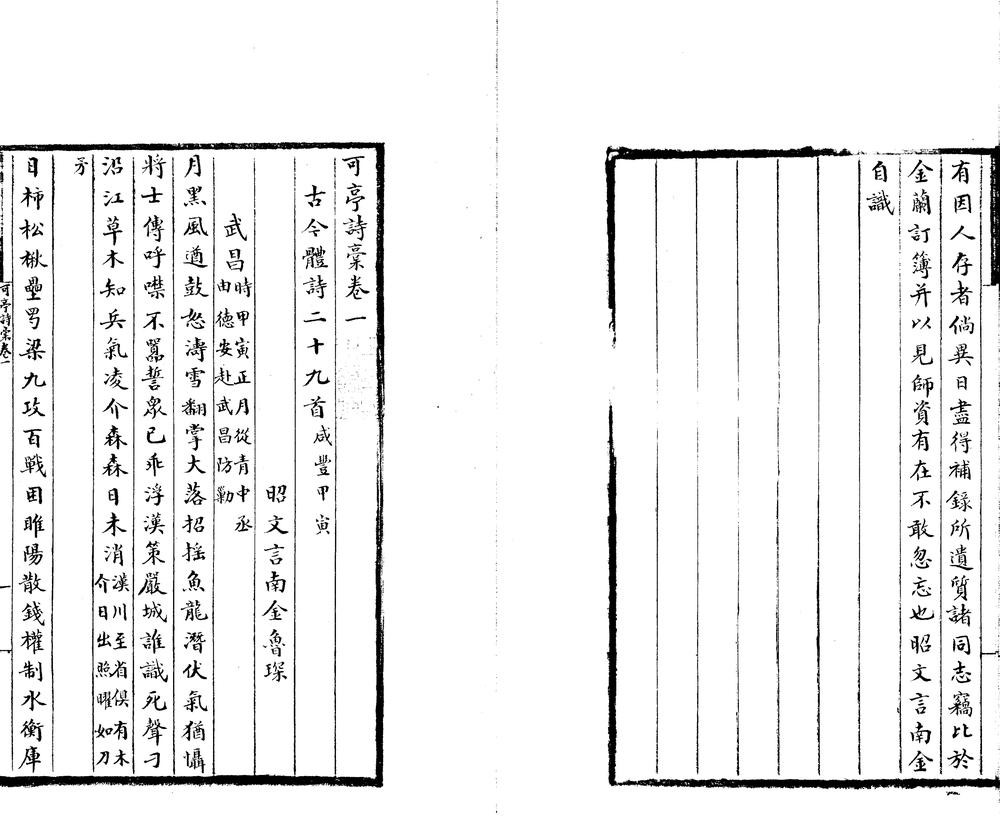 有因人存者倘異日盡得補錄所遺質諸同志竊比於
金蘭訂簿并以見師資有在不敢忽忘也昭文言南金
自識
可亭詩稾卷一
古今體詩二十九首咸豐甲寅
昭文言南金魯琛
武昌時甲寅正月從青中丞
由德安赴武昌防勦
月黑風遒鼓怒濤雪翻掌大落招搖魚龍潛伏氣猶懾
將士傳呼噤不囂誓眾已乖浮漢策嚴城誰識死聲刁
沿江草木知兵氣凌介森森日未消漢川至省俱有木
介日出照曜如刀
日柿松楸壘梁九攻百戰困睢陽散錢權制水衡庫
可亭詩稾卷一